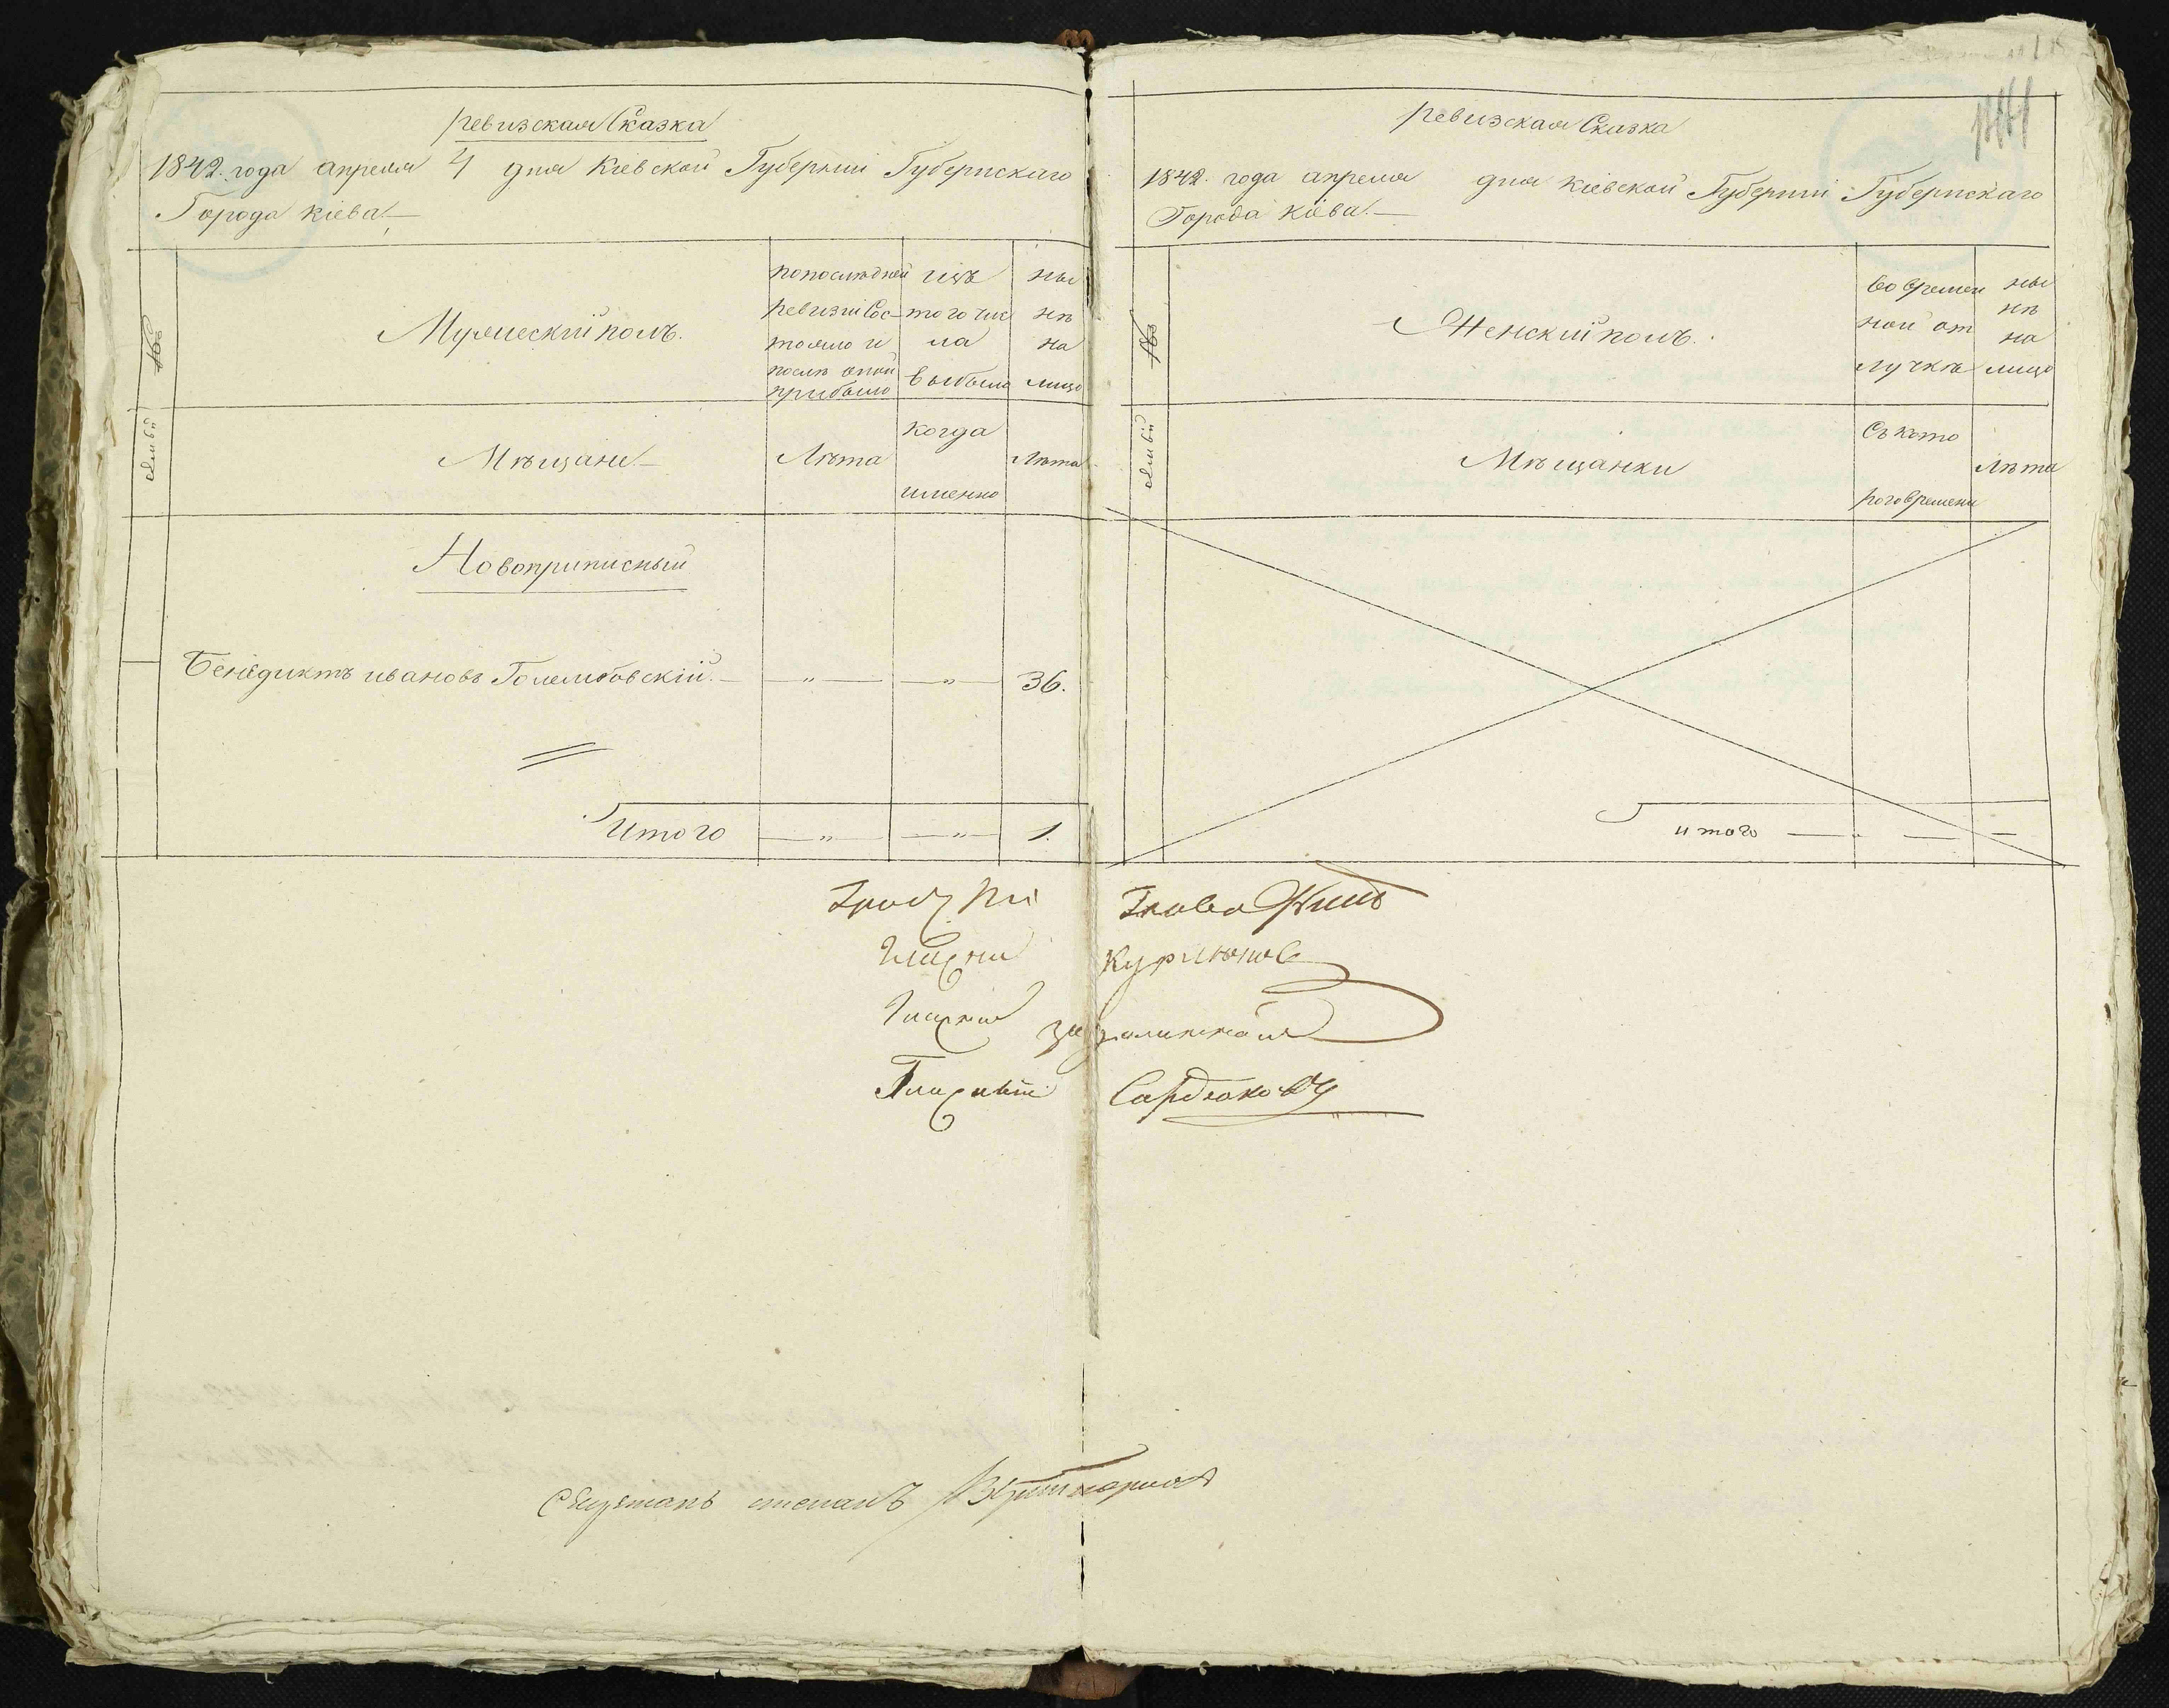 Ревизская Сказка
1842. года апреля 4 дня Кіевской Губерніи Губернскаго
Города Кіева.
Мужескій полъ.
по последней
ревизіи Сос-
тояло и
после оной
прибыло
изъ
того чис
ла
выбыло
ны
нѣ
на
лицо
Мѣщане.
Лѣта
когда
именно
Лѣта
Новоприписный
Бенедиктъ ивановъ Голембовскій.
36.
Итого
1.
Ревизская Сказка
1842. года апреля дня Кіевской Губерніи Губернскаго
Города Кіева.
Женскій полъ.
во времен
ной от
лучкѣ
ны
нѣ
на
лицо
Мѣщанки
Съ кото
раго времени
Лѣта
итого
Глава
Гласный